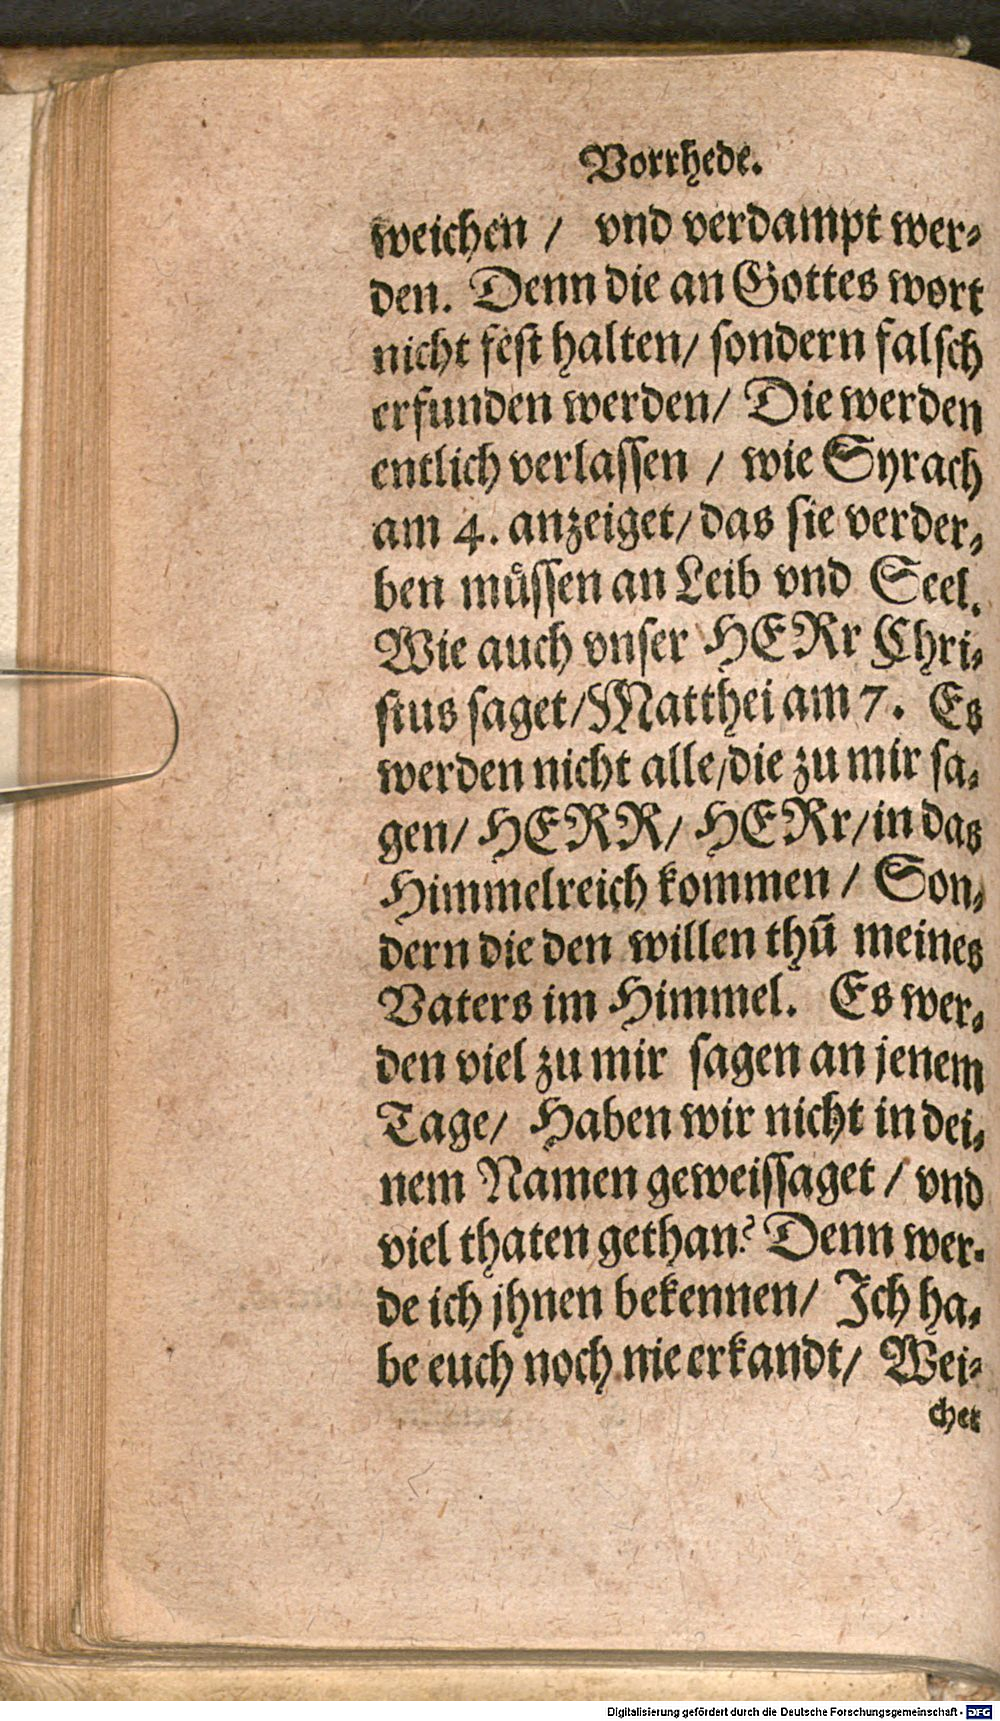 Vorrhede.
weichen / vnd verdampt wer⸗
den. Denn die an Gottes wort
nicht fest halten/ sondern falsch
erfunden werden/ Die werden
entlich verlassen / wie Syrach
am 4. anzeiget/ das sie verder⸗
ben muͤssen an Leib vnd Seel.
Wie auch vnser HERr Chri⸗
stus saget/ Matthei am 7. Es
werden nicht alle/ die zu mir sa⸗
gen/ HERR/ HERr/ in das
Himmelreich kommen / Son⸗
dern die den willen thū meines
Vaters im Himmel. Es wer⸗
den viel zu mir sagen an jenem
Tage/ Haben wir nicht in dei⸗
nem Namen geweissaget / vnd
viel thaten gethan? Denn wer⸗
de ich jhnen bekennen/ Ich ha⸗
be euch noch nie erkandt/ Wei⸗
chet
Digitalisierung gefördert durch die Deutsche Forschungsgemeinschaft - DFG